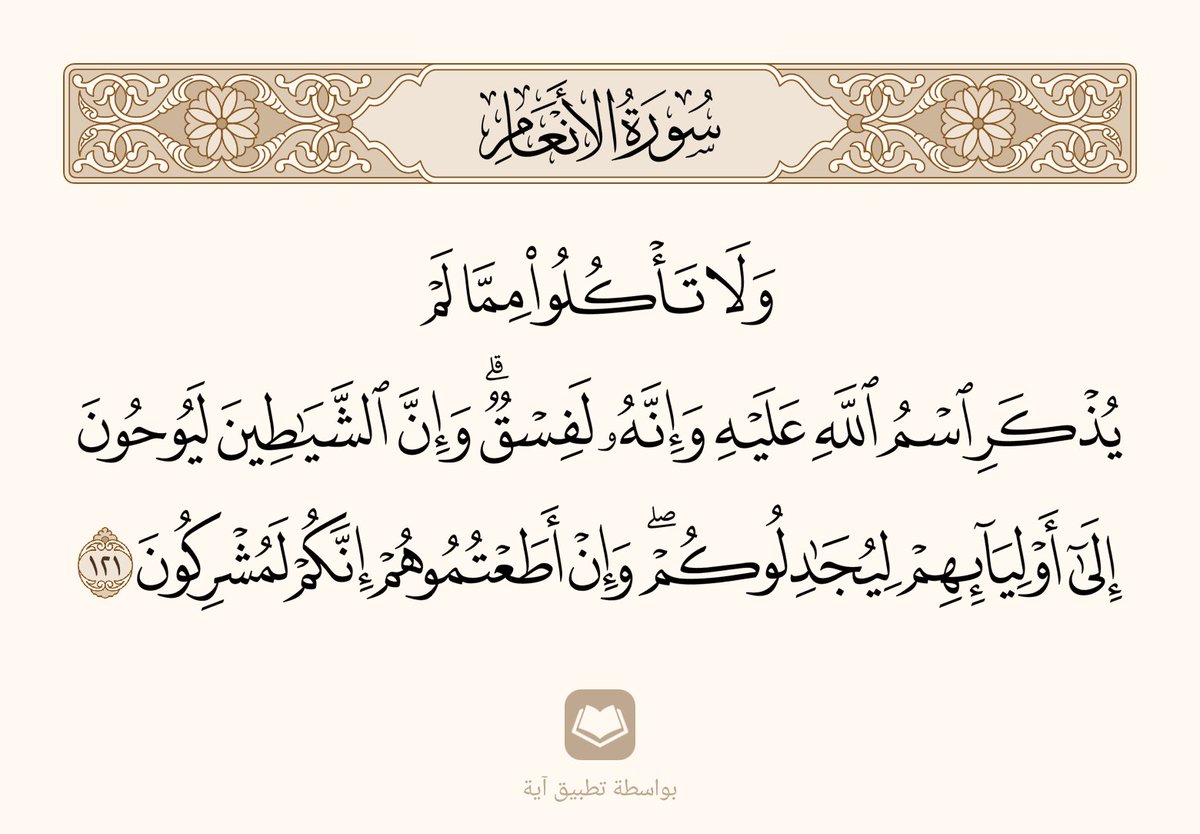 سُورَةُ الأَنْعَامِ
وَلَا تَأۡكُلُواْ مِمَّا لَمۡ
يُذۡكَرِ ٱسۡمُ ٱللَّهِ عَلَيۡهِ وَإِنَّهُۥ لَفِسۡقٞۗ وَإِنَّ ٱلشَّيَٰطِينَ لَيُوحُونَ
إِلَىٰٓ أَوۡلِيَآئِهِمۡ لِيُجَٰدِلُوكُمۡۖ وَإِنۡ أَطَعۡتُمُوهُمۡ إِنَّكُمۡ لَمُشۡرِكُونَ ١٢١
بواسطة تطبيق آية